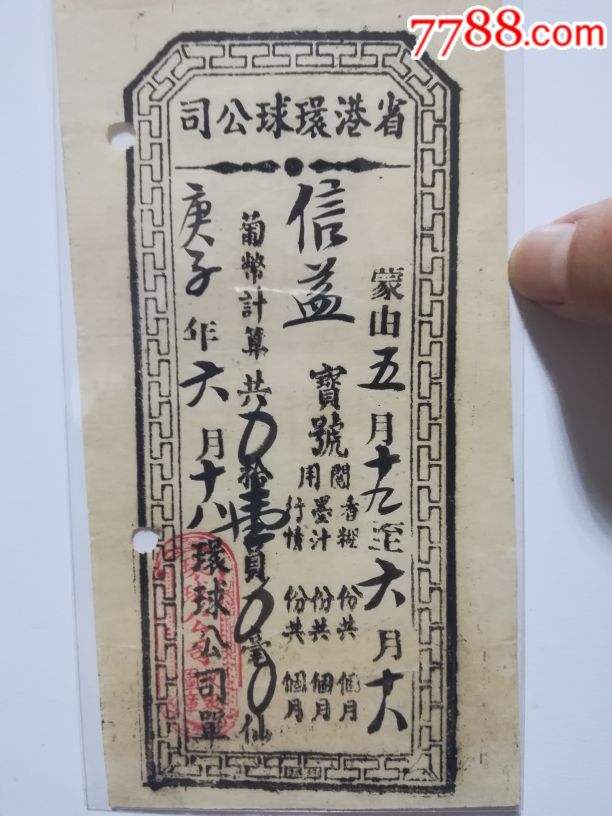 7788.com
省港環球公司
蒙由五月十九至六月十八
信益寶號閱用
香 份共 個月
墨汁 份共 個月
行情 份共 個月
葡幣計算共0拾壹員0毫0仙
庚子年六月十八環球公司單